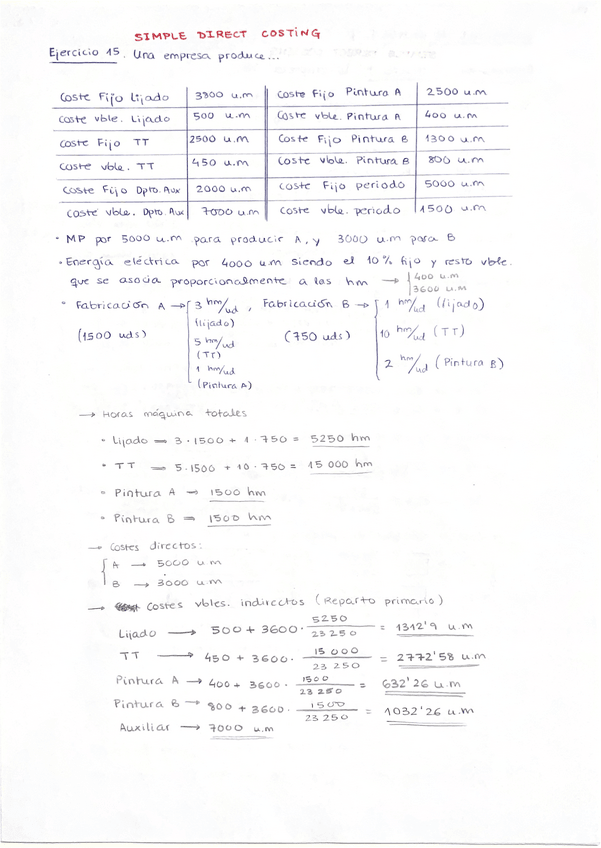 SIMPLE DIRECT COSTING
Ejercicio 15. Una empresa produce...
Coste Fijo Lijado 3800 u.m Coste Fijo Pintura A 2500 u.m
Coste vble. Lijado 500 u.m Coste vble. Pintura A 400 u.m
Coste Fijo TT 2500 u.m Coste Fijo Pintura B 1300 u.m
Coste vble. TT 450 u.m Coste vble. Pintura B 800 u.m
Coste Fijo Dpto. Aux 2000 u.m Coste Fijo periodo 5000 u.m
Coste vble. Dpto. Aux 7000 u.m Coste vble. periodo 1500 u.m
· MP por 5000 u.m para producir A, y 3000 u.m para B
· Energía eléctrica por 4000 u.m siendo el 10% fijo y resto vble.
que se asocia proporcionalmente a las hm → { 400 u.m
3600 u.m
· Fabricación A → { 3 hm/ud , Fabricación B → { 1 hm/ud (lijado)
(lijado)
(1500 uds) 5 hm/ud (750 uds) 10 hm/ud (TT)
(TT)
1 hm/ud 2 hm/ud (Pintura B)
(Pintura A)
→ Horas máquina totales
· Lijado = 3·1500 + 1·750 = 5250 hm
· TT = 5·1500 + 10·750 = 15 000 hm
· Pintura A → 1500 hm
· Pintura B = 1500 hm
→ Costes directos:
{ A → 5000 u.m
B → 3000 u.m
→ Costes vbles. indirectos (Reparto primario)
Lijado → 500 + 3600 · 5250/23 250 = 1312'9 u.m
TT → 450 + 3600 · 15 000/23 250 = 2772'58 u.m
Pintura A → 400 + 3600 · 1500/23 250 = 632'26 u.m
Pintura B → 800 + 3600 · 1500/23 250 = 1032'26 u.m
Auxiliar → 7000 u.m